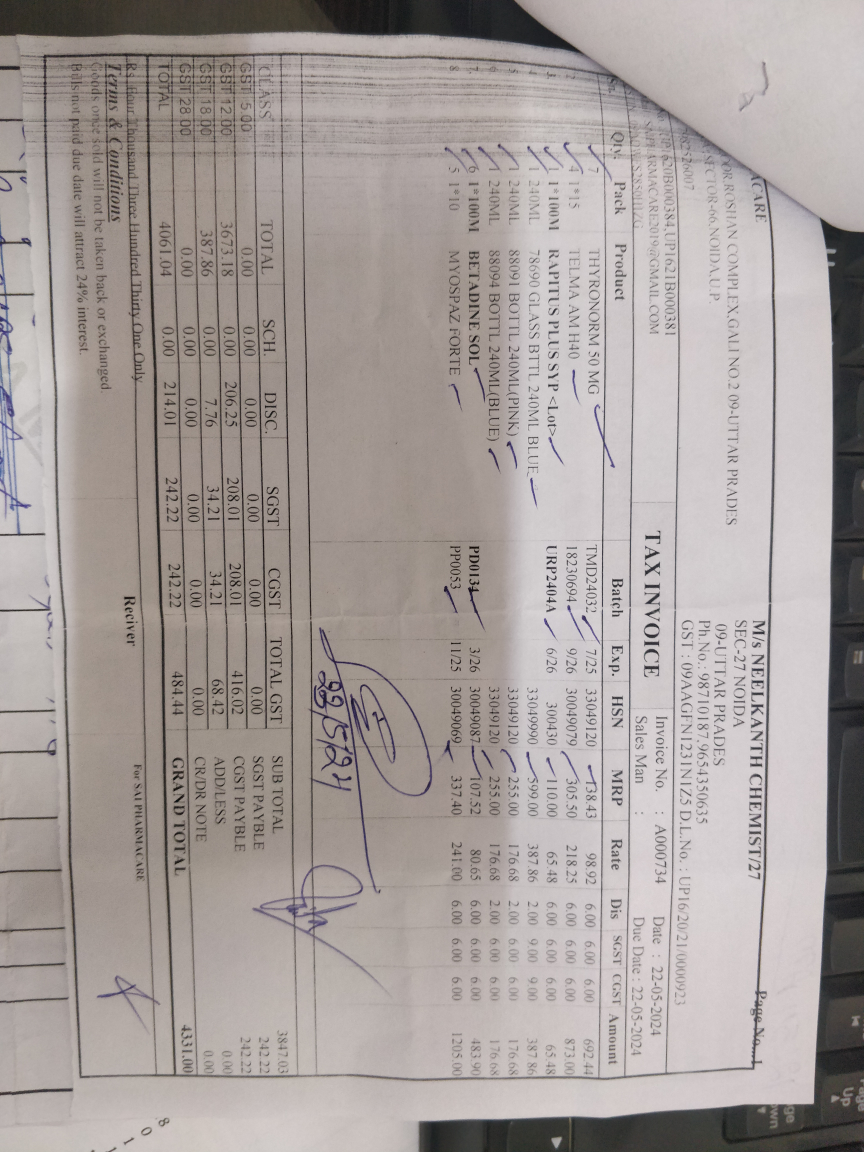 ACARE
OOR,ROSHAN COMPLEX,GALI NO.2 09-UTTAR PRADES
SECTOR-66,NOIDA,U.P.
620B000384,UP1621B000381
SAIPHARMACARE2019@GMAIL.COM
Page No...1
M/s NEELKANTH CHEMIST/27
SEC-27 NOIDA
09-UTTAR PRADES
Ph.No.: 98710187,9654350635
GST : 09AAGFN1231N1Z5 D.L.No. : UP16/20/21/0000923
TAX INVOICE
Invoice No. : A000734 Date : 22-05-2024
Sales Man : Due Date : 22-05-2024
Qty. Pack Product Batch Exp. HSN MRP Rate Dis SGST CGST Amount
7 THYRONORM 50 MG TMD24032 7/25 33049120 138.43 98.92 6.00 6.00 6.00 692.44
4 1*15 TELMA AM H40 18230694 9/26 30049079 305.50 218.25 6.00 6.00 6.00 873.00
1 1*100M RAPITUS PLUS SYP <Lot> URP2404A 6/26 300430 110.00 65.48 6.00 6.00 6.00 65.48
1 240ML 78690 GLASS BTTL 240ML BLUE 33049990 599.00 387.86 2.00 9.00 9.00 387.86
1 240ML 88091 BOTTL 240ML(PINK) 33049120 255.00 176.68 2.00 6.00 6.00 176.68
1 240ML 88094 BOTTL 240ML(BLUE) 33049120 255.00 176.68 2.00 6.00 6.00 176.68
6 1*100M BETADINE SOL PD0134 3/26 30049087 107.52 80.65 6.00 6.00 6.00 483.90
8 5 1*10 MYOSPAZ FORTE PP0053 11/25 30049069 337.40 241.00 6.00 6.00 6.00 1205.00
22/5/24
CLASS TOTAL SCH. DISC. SGST CGST TOTAL GST
GST 5.00 0.00 0.00 0.00 0.00 0.00 0.00
GST 12.00 3673.18 0.00 206.25 208.01 208.01 416.02
GST 18.00 387.86 0.00 7.76 34.21 34.21 68.42
GST 28.00 0.00 0.00 0.00 0.00 0.00 0.00
TOTAL 4061.04 0.00 214.01 242.22 242.22 484.44
SUB TOTAL 3847.03
SGST PAYBLE 242.22
CGST PAYBLE 242.22
ADD/LESS 0.00
CR/DR NOTE 0.00
GRAND TOTAL 4331.00
Rs. Four Thousand Three Hundred Thirty One Only
Terms & Conditions
Goods once sold will not be taken back or exchanged.
Bills not paid due date will attract 24% interest.
Reciver
For SAI PHARMACARE
Page
Up